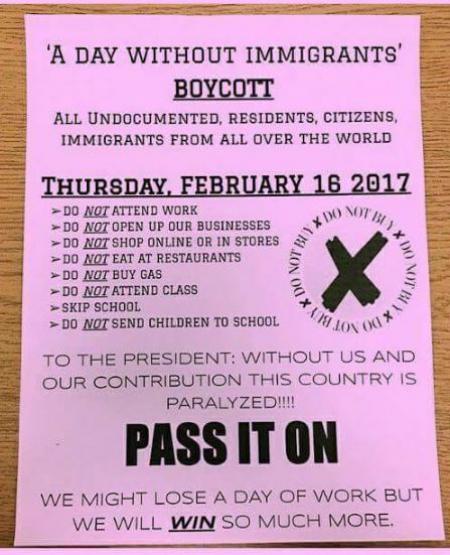 'A DAY WITHOUT IMMIGRANTS'
BOYCOTT
ALL UNDOCUMENTED, RESIDENTS, CITIZENS,
IMMIGRANTS FROM ALL OVER THE WORLD
THURSDAY, FEBRUARY 16 2017
➢DO NOT ATTEND WORK
➢DO NOT OPEN UP OUR BUSINESSES
➢DO NOT SHOP ONLINE OR IN STORES
➢DO NOT EAT AT RESTAURANTS
➢DO NOT BUY GAS
➢DO NOT ATTEND CLASS
➢SKIP SCHOOL
➢DO NOT SEND CHILDREN TO SCHOOL
X DO NOT BUY X DO NOT BUY X DO NOT BUY X DO NOT BUY
X
TO THE PRESIDENT: WITHOUT US AND
OUR CONTRIBUTION THIS COUNTRY IS
PARALYZED!!!!
PASS IT ON
WE MIGHT LOSE A DAY OF WORK BUT
WE WILL WIN SO MUCH MORE.